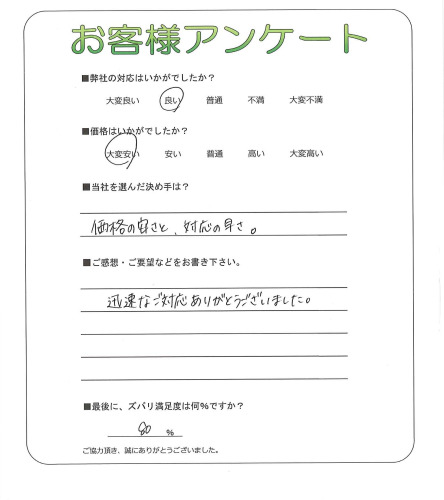 お客様アンケート
■弊社の対応はいかがでしたか？
大変良い 良い 普通 不満 大変不満
■価格はいかがでしたか？
大変安い 安い 普通 高い 大変高い
■当社を選んだ決め手は？
価格の安さと、対応の早さ。
■ご感想・ご要望などをお書き下さい。
迅速なご対応ありがとうございました。
■最後に、ズバリ満足度は何%ですか？
80 %
ご協力頂き、誠にありがとうございました。